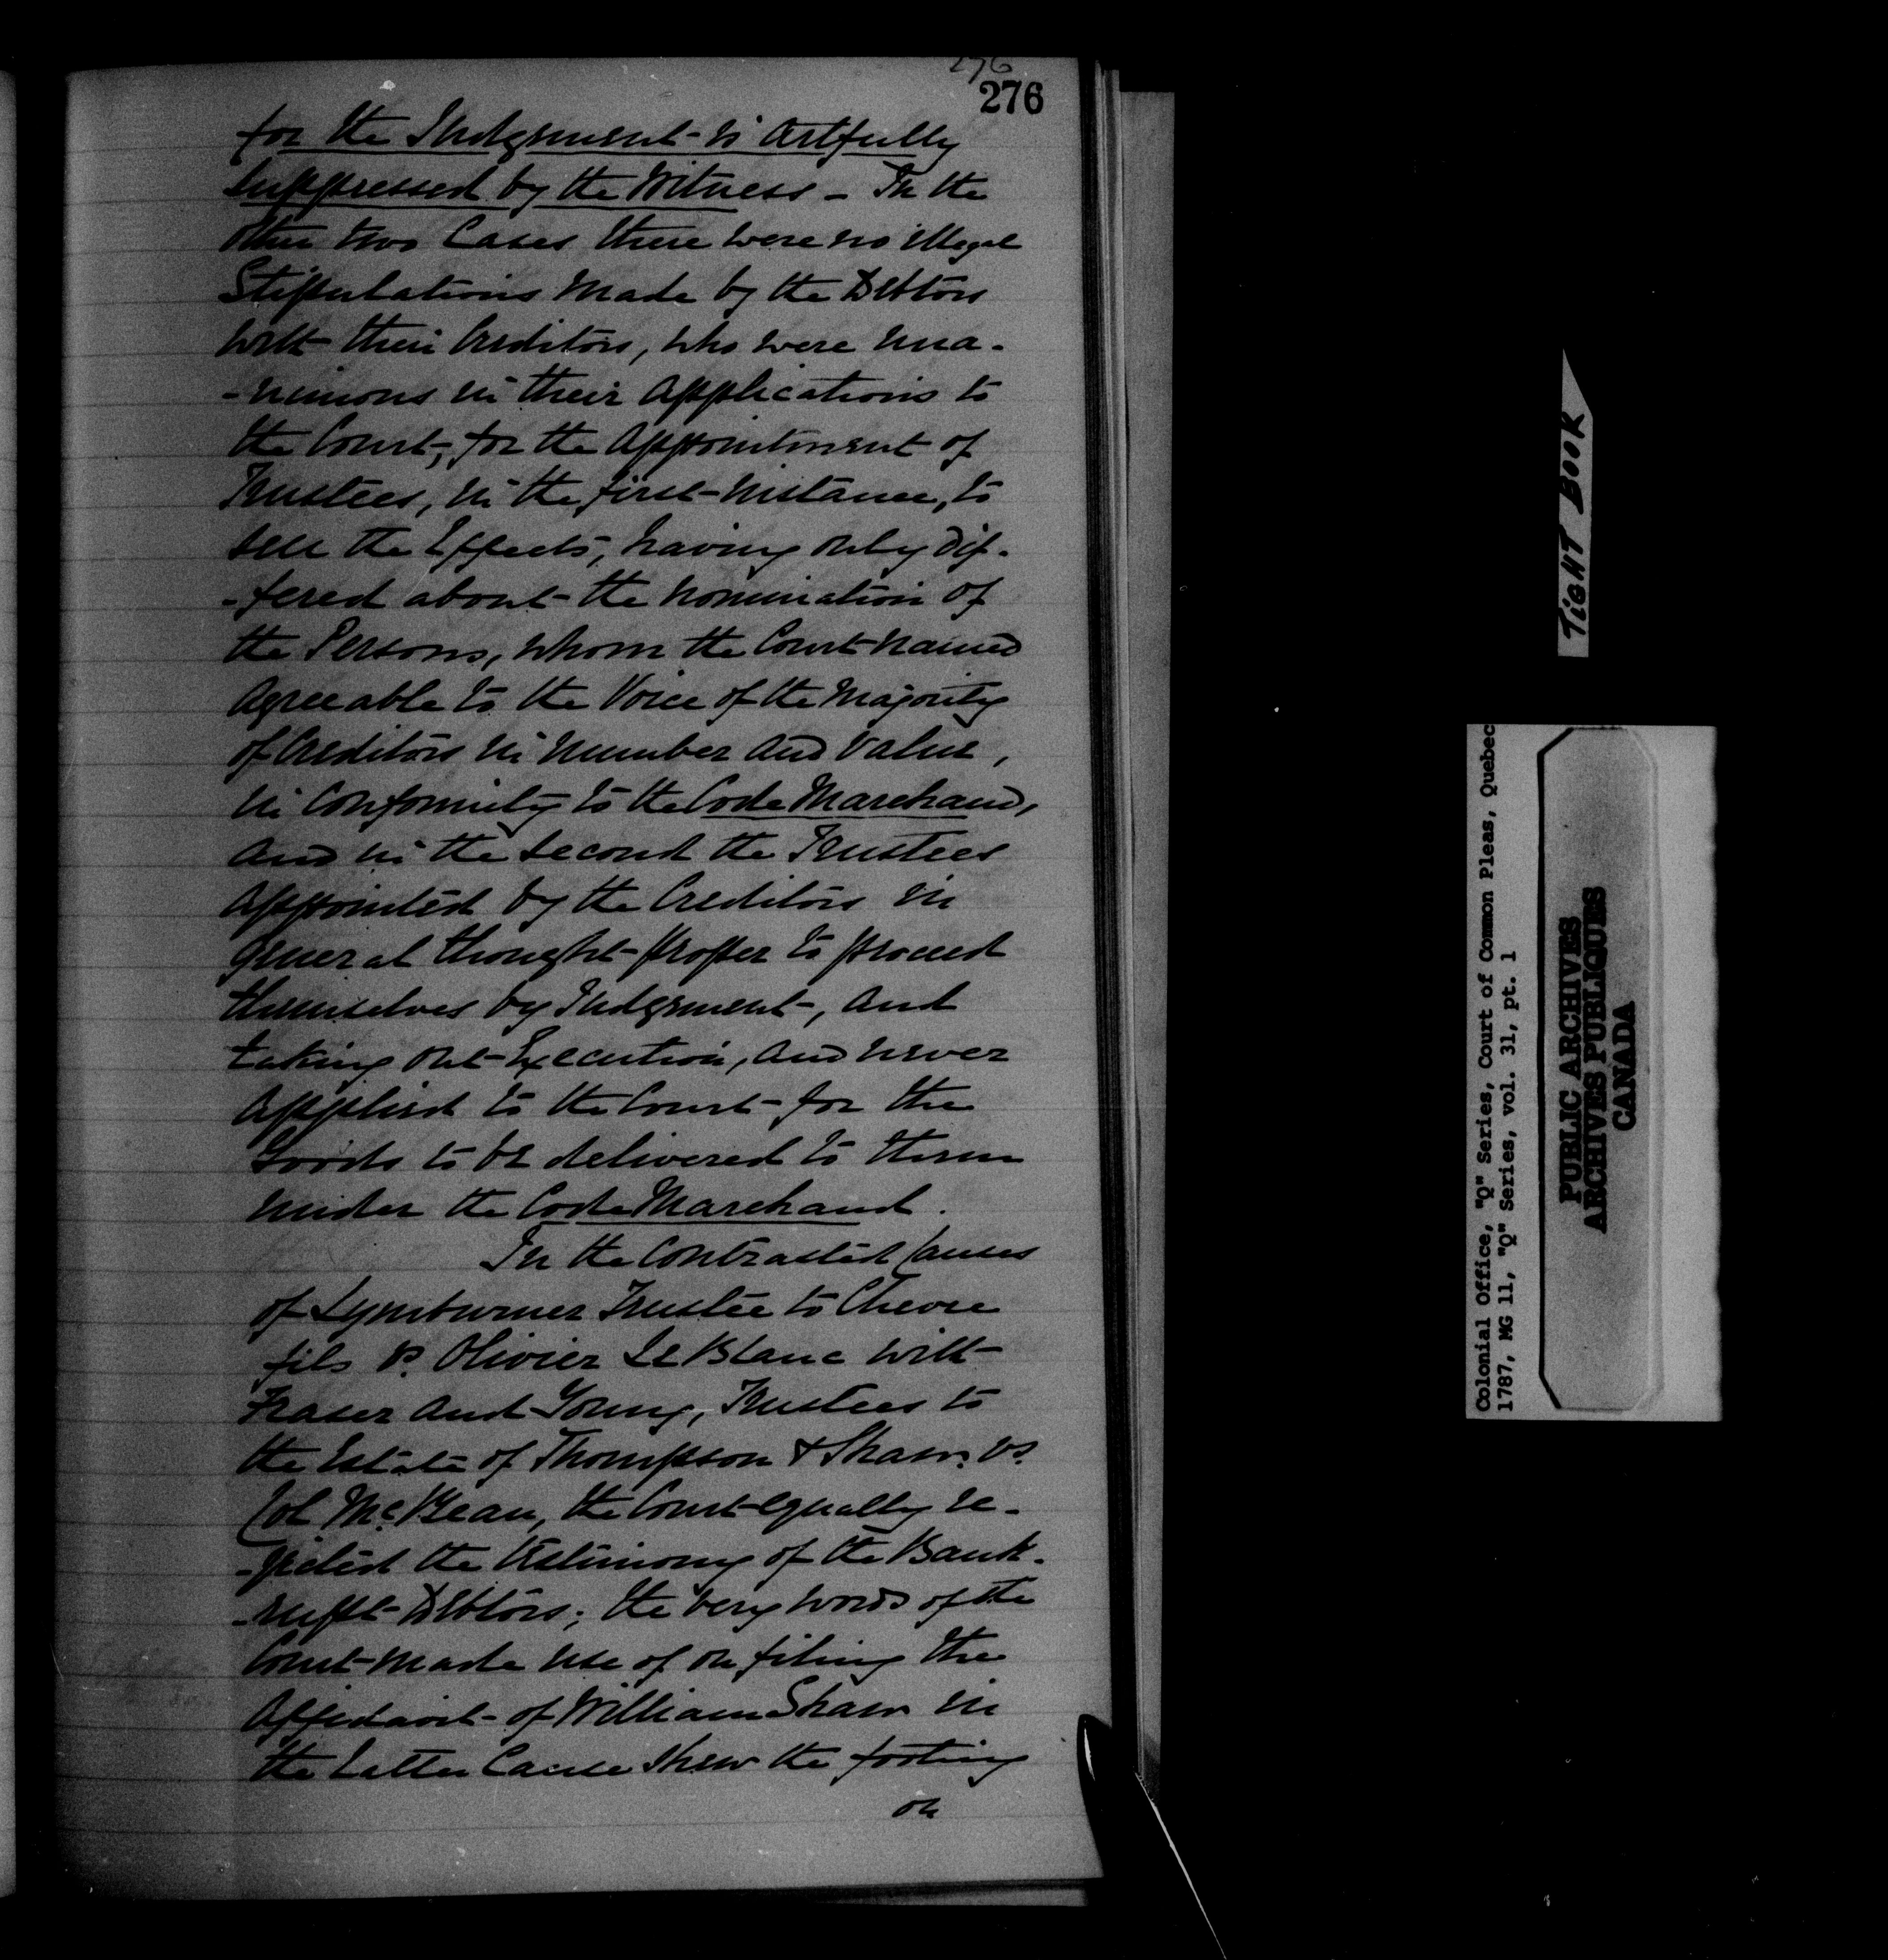 276
276
for the Judgment is artfully
suppressed by the Witness - In the
other two Cases there were no illegal
Stipulations made by the Debtors
with their Creditors, who were una-
-nimous in their applications to
the Court, for the appointment of
Trustees, in the first instance, to
sell the Effects, having only dif-
-fered about the nomination of
the Persons, whom the Court named
agreeable to the Voice of the Majority
of Creditors in number and value,
in conformity to the Code Marchand,
and in the second the Trustees
appointed by the Creditors in
general thought proper to proceed
themselves by Judgment, and
taking out Execution, and never
applied to the Court for the
Goods to be delivered to them
under the Code Marchand.
In the contrasted Causes
of Lymburner Trustee to
fils vs. Olivier Le Blanc with
Fraser and Young, Trustees to
the Estate of Thompson & Shaw. vs.
Col McBean, the Court equally re-
-jected the testimony of the Bank-
-rupt Debtors; the very words of the
Court made use of on filing the
Affidavit of William Shaw in
the latter Cause shew the footing
on
TIGHT BOOK
Colonial Office, "Q" Series, Court of Common Pleas, Quebec
1787, MG 11, "Q" Series, vol. 31, pt. 1
PUBLIC ARCHIVES
ARCHIVES PUBLIQUES
CANADA